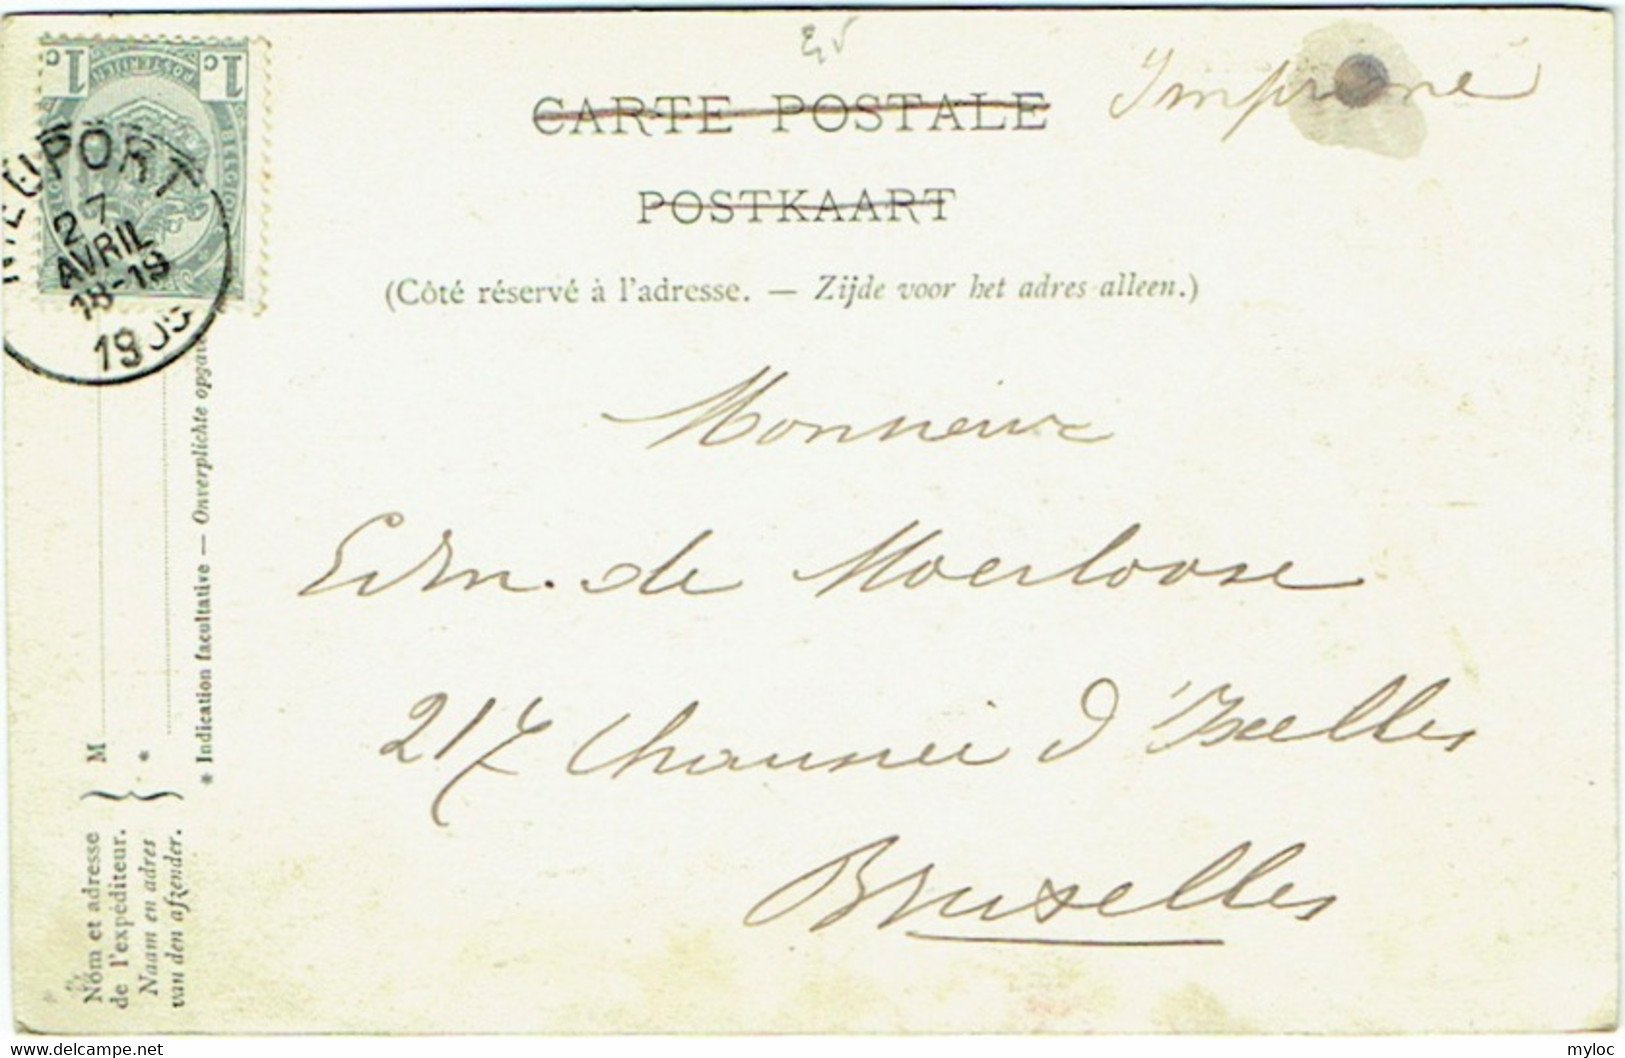 Imprimé
CARTE POSTALE
POSTKAART
(Côté réservé à l'adresse. — Zijde voor het adres alleen.)
1c 1c
POSTERIJEN
BELGIQUE
NIEUPORT
27
AVRIL
18-19
1905
Monsieur
Edm. de Moerloose
217 Chaussée d'Ixelles
Bruxelles
Nom et adresse
de l'expéditeur.
Naam en adres
van den afzender.
M
*
* Indication facultative — Onverplichte opgave
delcampe.net
myloc